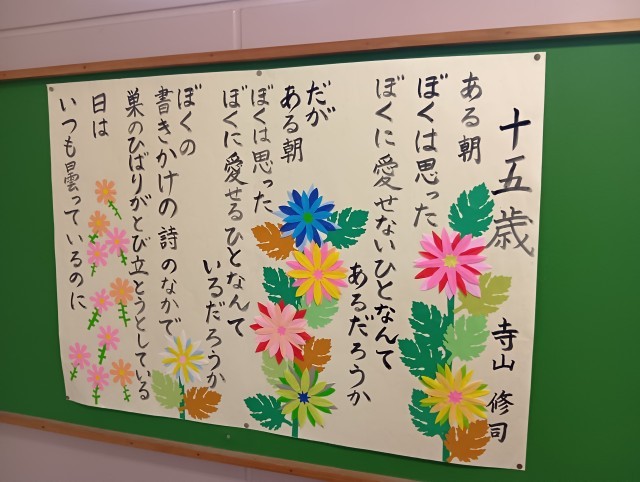 十五歳
寺山 修司
ある朝
ぼくは思った
ぼくに愛せないひとなんて
あるだろうか
だが
ある朝
ぼくは思った
ぼくに愛せるひとなんて
いるだろうか
ぼくの
書きかけの詩のなかで
巣のひばりがとび立とうとしている
日は
いつも曇っているのに